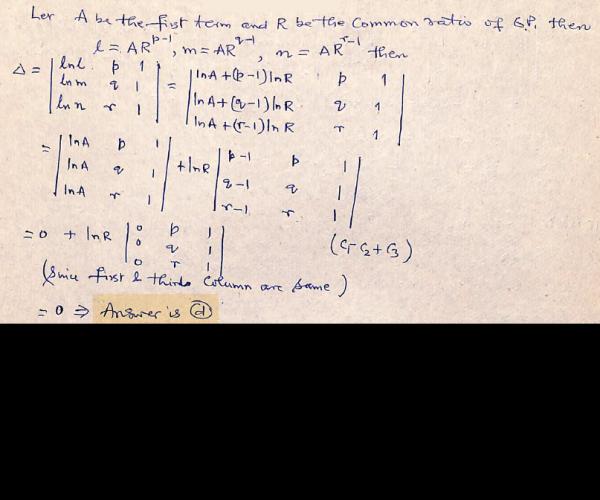 Let A be the first term and R be the Common ratio of G.P. then
l = AR^{p-1}, m = AR^{q-1}, n = AR^{r-1} then
Δ = | ln l p 1 | = | ln A + (p-1) ln R p 1 |
| ln m q 1 | | ln A + (q-1) ln R q 1 |
| ln n r 1 | | ln A + (r-1) ln R r 1 |
= | ln A p 1 | + ln R | p-1 p 1 |
| ln A q 1 | | q-1 q 1 |
| ln A r 1 | | r-1 r 1 |
= 0 + ln R | 0 p 1 | (C₁-C₂+C₃)
| 0 q 1 |
| 0 r 1 |
(Since first & third Column are same)
= 0 ⇒ Answer is (d)